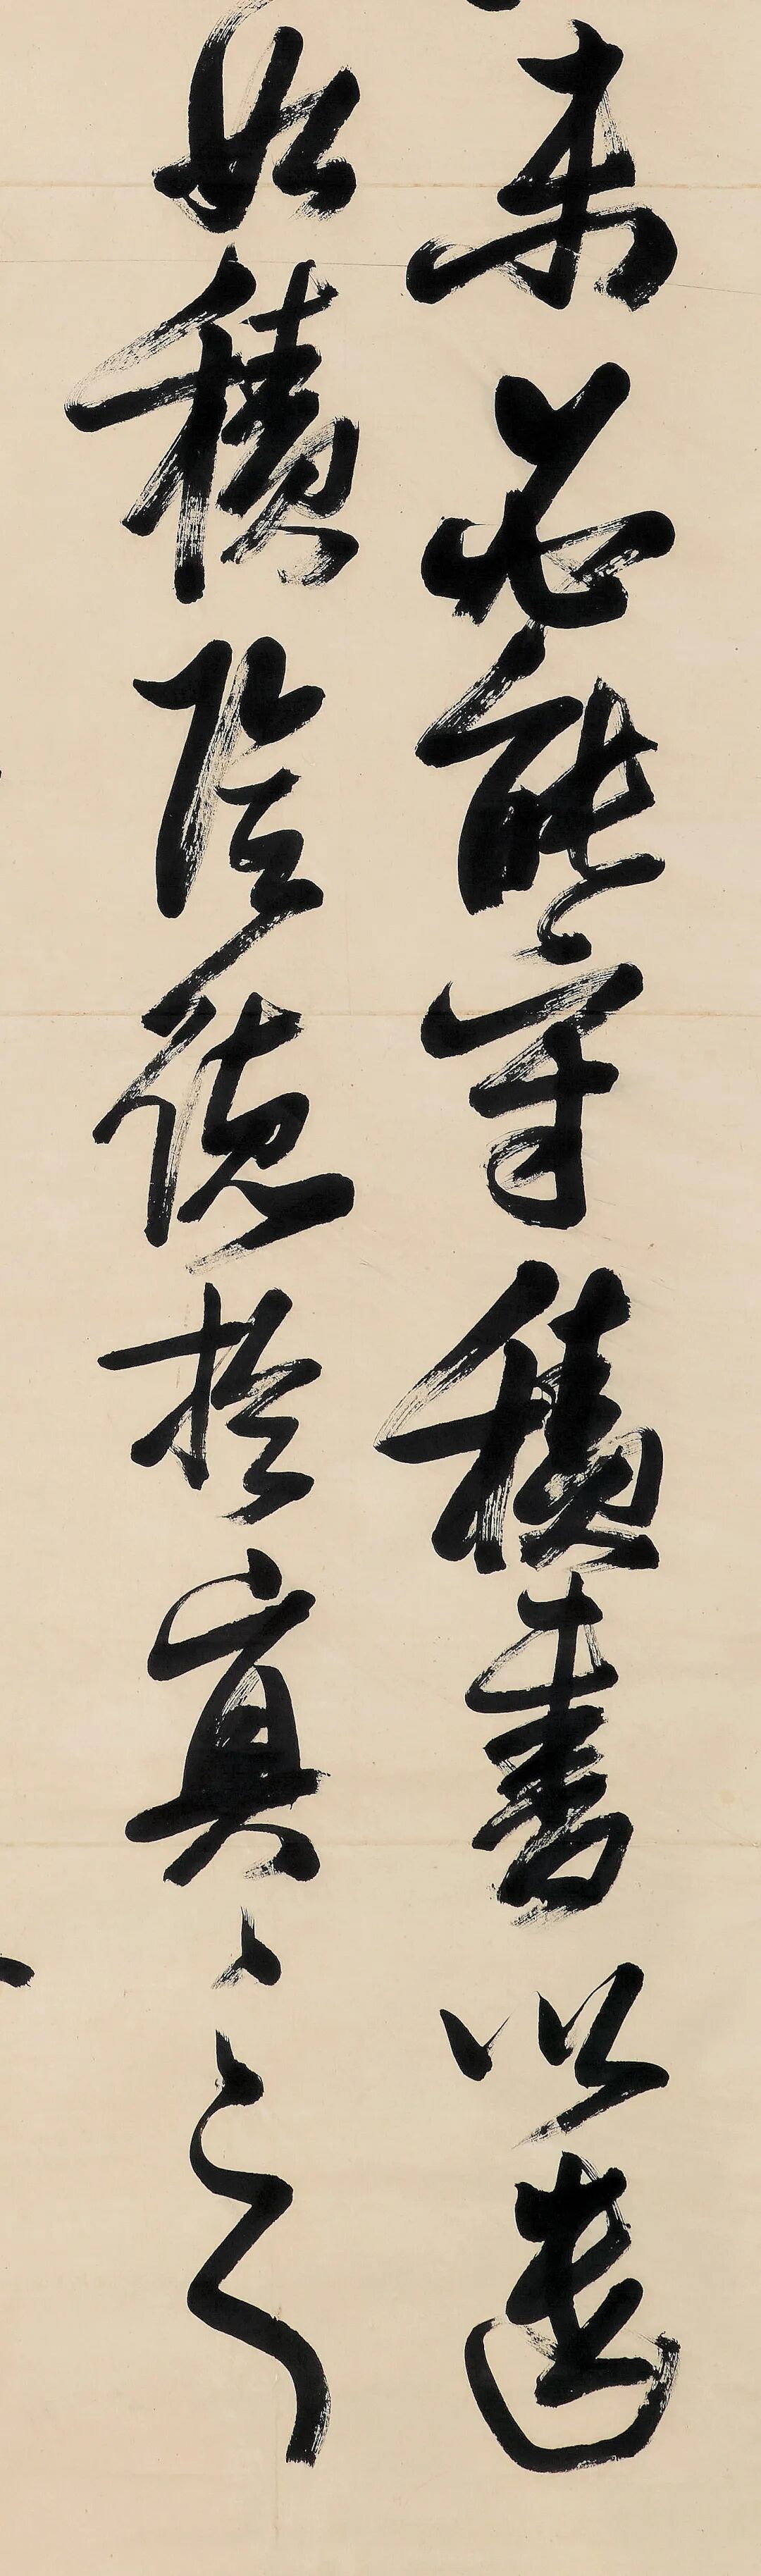 未必能守積書以遺
如積陰德於冥〻之